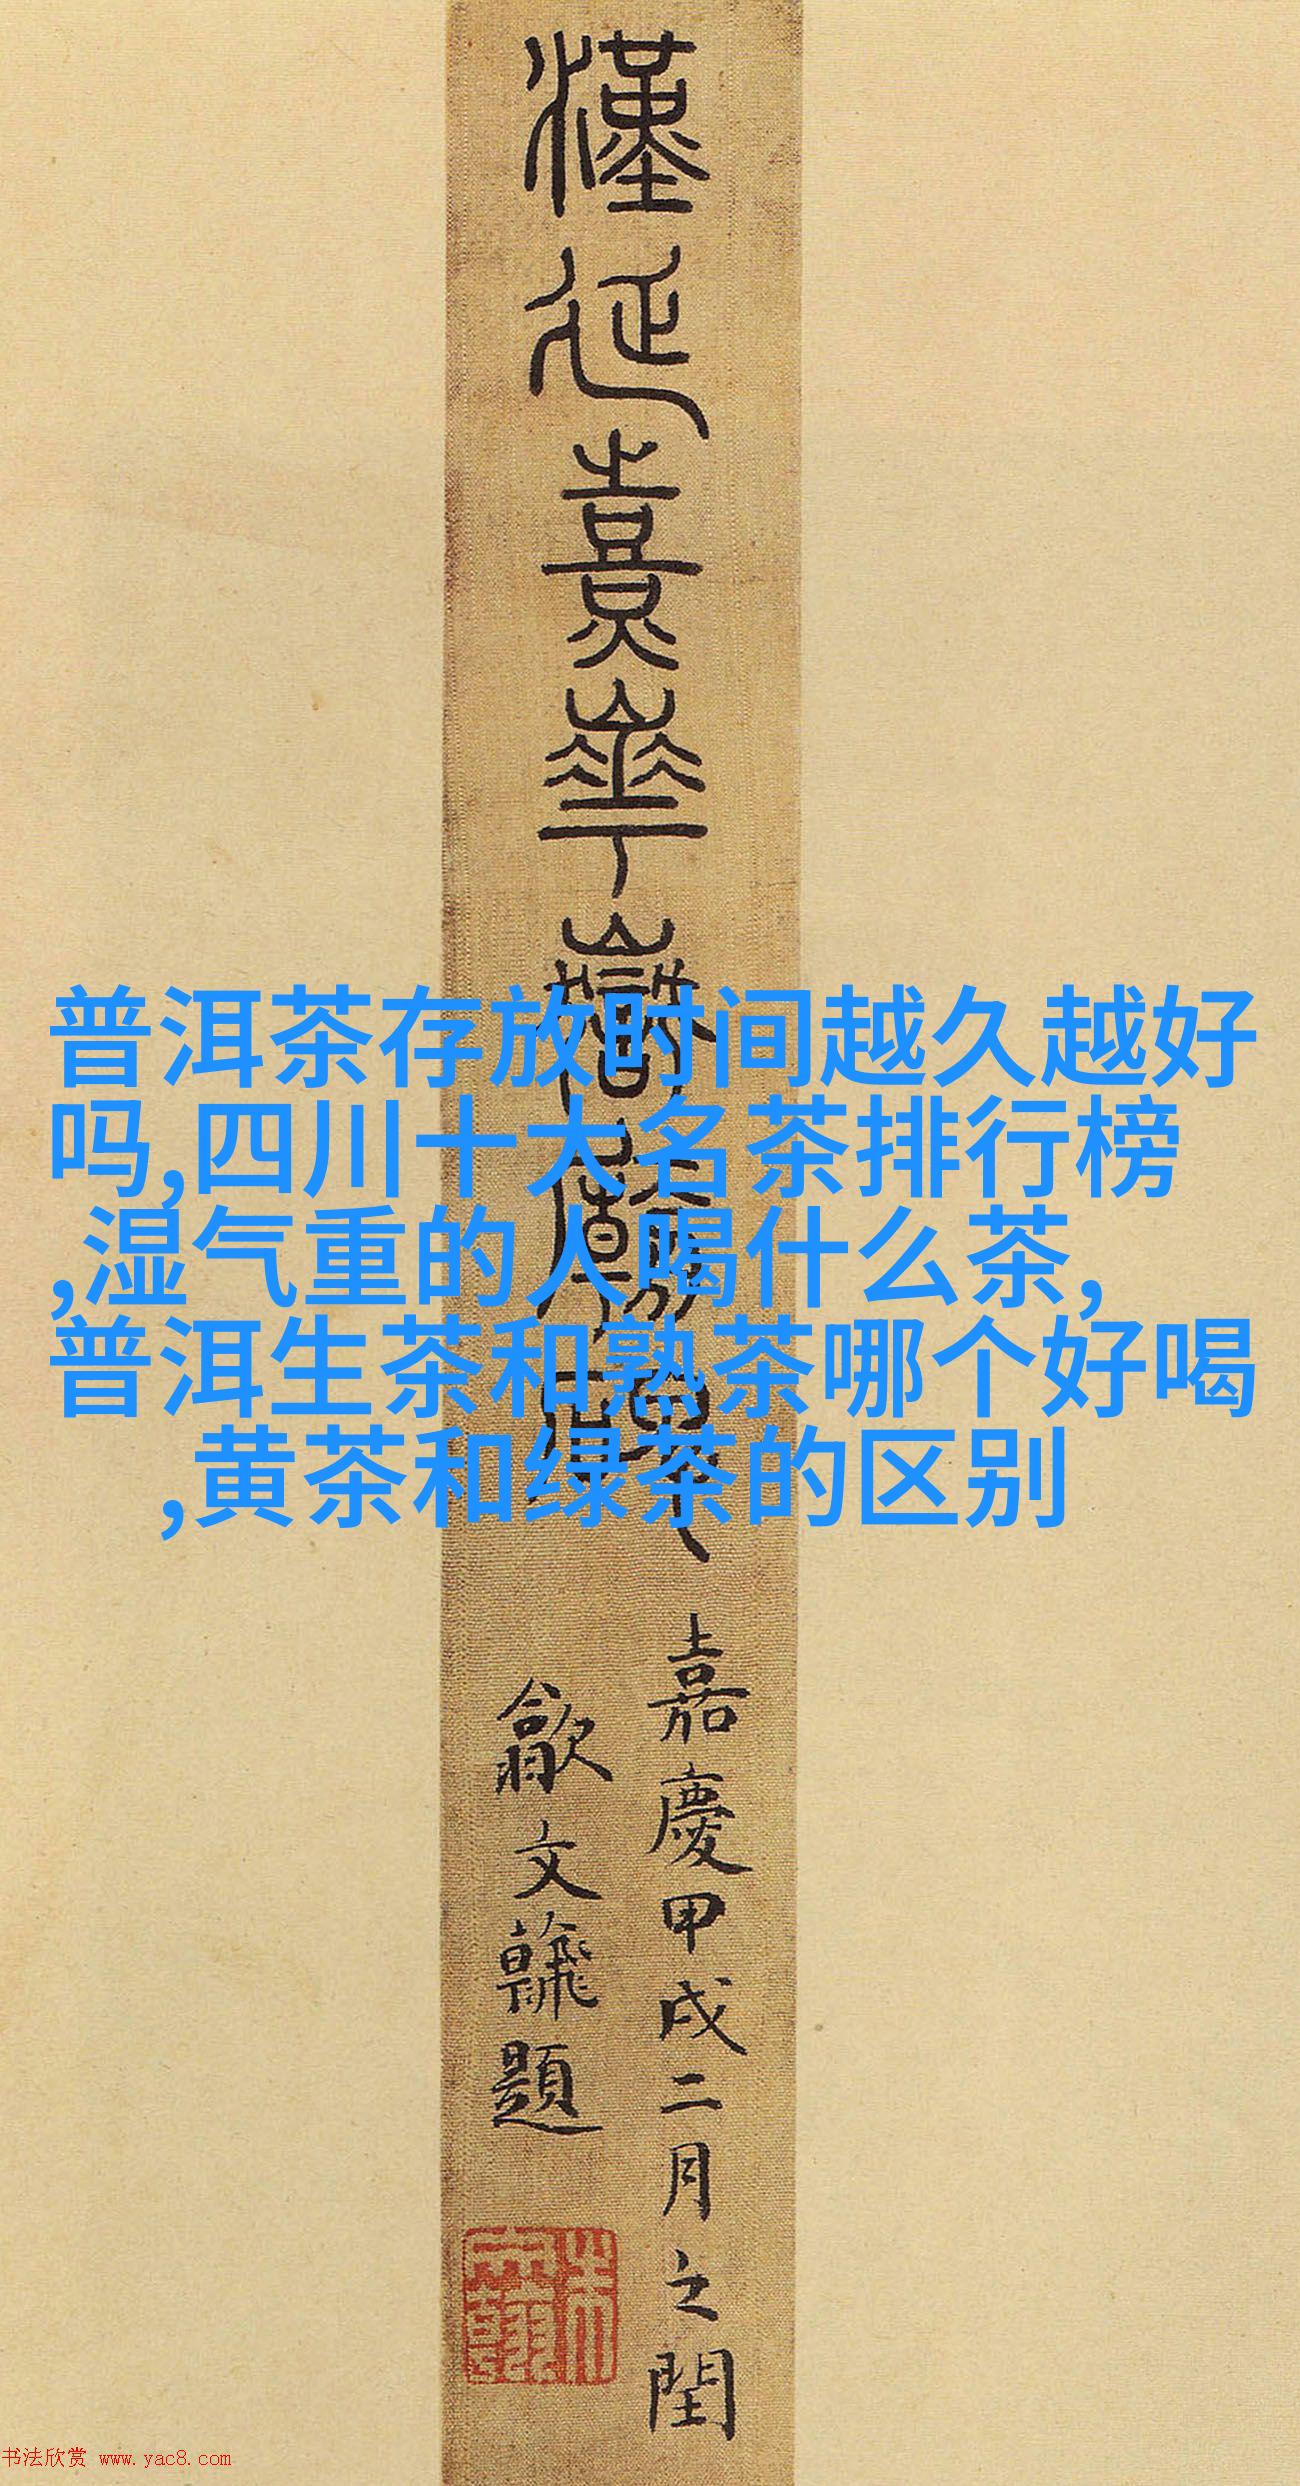 漢延熹華嶽廟碑
嘉慶甲戌二月之閏
歙文翰題
普洱茶存放时间越久越好
吗,四川十大名茶排行榜
,湿气重的人喝什么茶,
普洱生茶和熟茶哪个好喝
,黄茶和绿茶的区别
书法欣赏 www.yac8.com